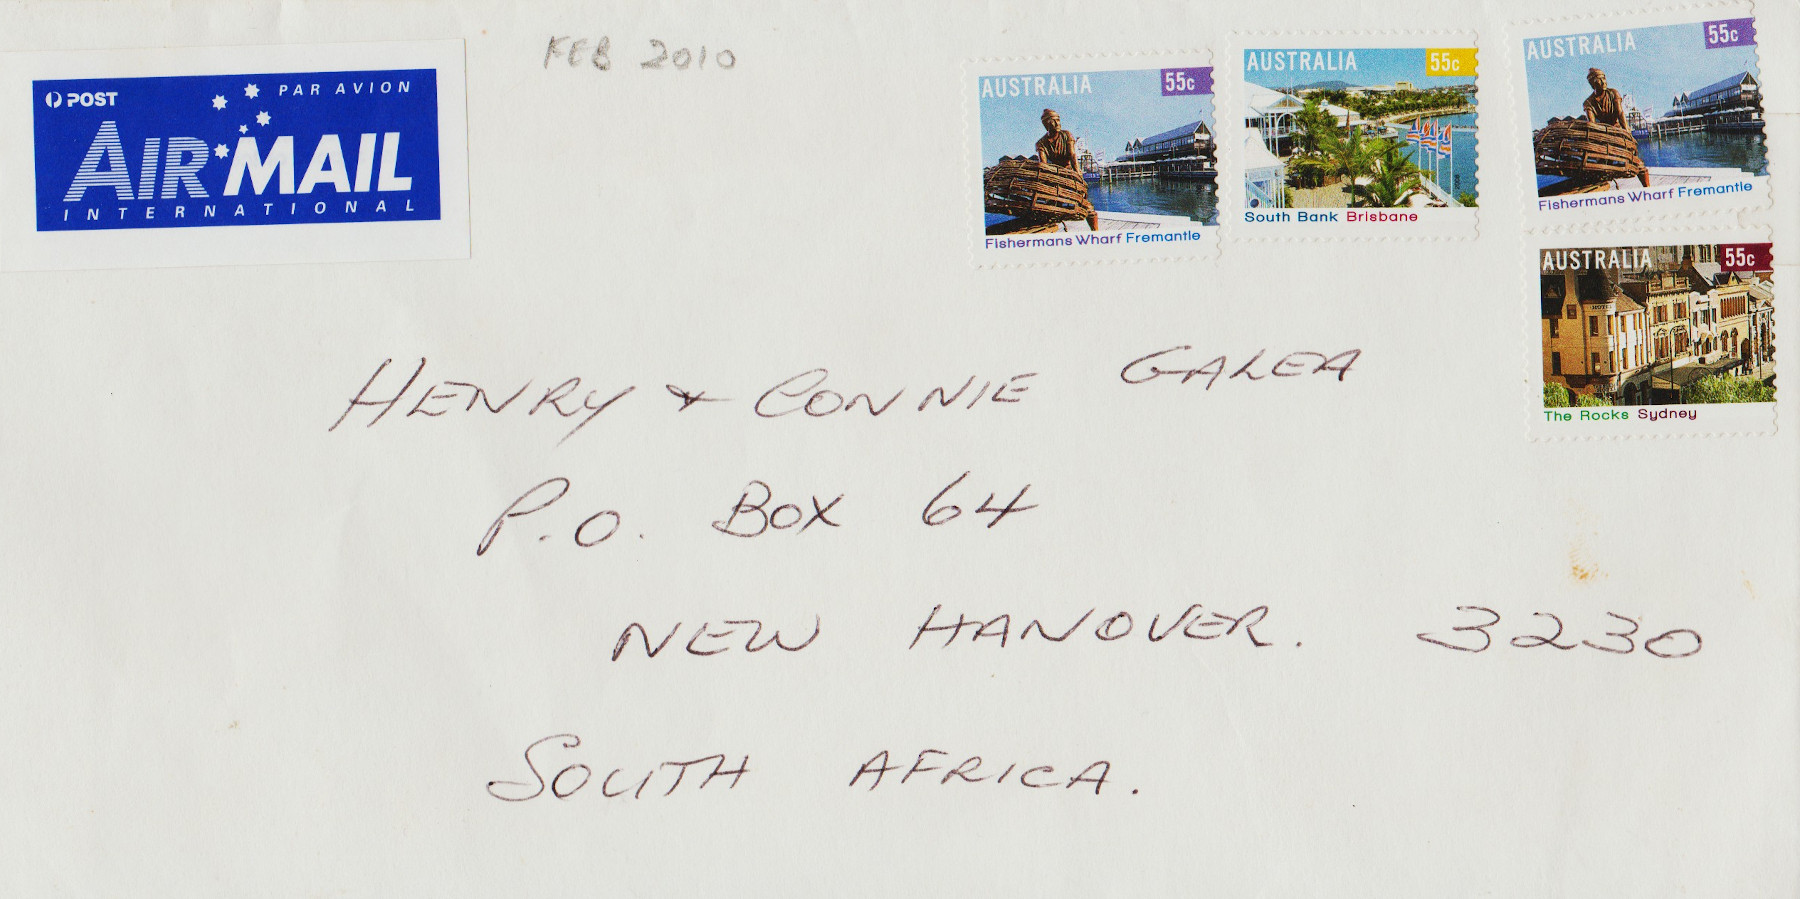 FEB 2010
POST
PAR AVION
AIR MAIL
INTERNATIONAL
AUSTRALIA 55c
Fishermans Wharf Fremantle
AUSTRALIA 55c
South Bank Brisbane
AUSTRALIA 55c
Fishermans Wharf Fremantle
AUSTRALIA 55c
The Rocks Sydney
HENRY & CONNIE GALEA
P.O. BOX 64
NEW HANOVER. 3230
SOUTH AFRICA.